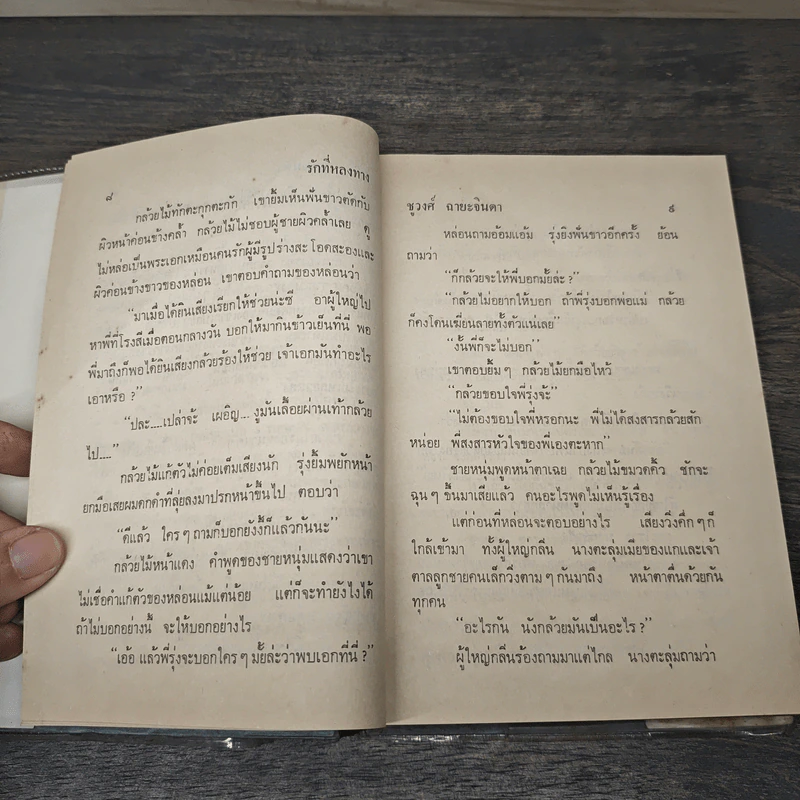 รักที่หลงทาง
๘
กล้วยไม้ทักตะกุกตะกัก เขายิ้มเห็นฟันขาวตัดกับ
ผิวหน้าค่อนข้างคล้ำ กล้วยไม้ไม่ชอบผู้ชายผิวคล้ำเลย ดู
ไม่หล่อเป็นพระเอกเหมือนคนรักผู้มีรูปร่างสะโอดสะองและ
ผิวค่อนข้างขาวของหล่อน เขาตอบคำถามของหล่อนว่า
“มาเมื่อได้ยินเสียงเรียกให้ช่วยน่ะซี อาผู้ใหญ่ไป
หาพี่ที่โรงสีเมื่อตอนกลางวัน บอกให้มากินข้าวเย็นที่นี่ พอ
พี่มาถึงก็พอได้ยินเสียงกล้วยร้องให้ช่วย เจ้าเอกมันทำอะไร
เอาหรือ ?”
“ปละ....เปล่าจ้ะ เผอิญ... งูมันเลื้อยผ่านเท้ากล้วย
ไป....”
กล้วยไม้แก้ตัวไม่ค่อยเต็มเสียงนัก รุ่งยิ้มพยักหน้า
ยกมือเสยผมดกดำที่ลุ่ยลงมาปรกหน้าขึ้นไป ตอบว่า
“ดีแล้ว ใคร ๆ ถามก็บอกยังงี้ก็แล้วกันนะ”
กล้วยไม้หน้าแดง คำพูดของชายหนุ่มแสดงว่าเขา
ไม่เชื่อคำแก้ตัวของหล่อนแม้แต่น้อย แต่ก็จะทำยังไงได้
ถ้าไม่บอกอย่างนี้ จะให้บอกอย่างไร
“เอ้อ แล้วพี่รุ่งจะบอกใคร ๆ มั้ยล่ะว่าพบเอกที่นี่ ?”
ชูวงศ์ ฉายะจินดา
๙
หล่อนถามอ้อมแอ้ม รุ่งยิงฟันขาวอีกครั้ง ย้อน
ถามว่า
“ก็กล้วยจะให้พี่บอกมั้ยล่ะ ?”
“กล้วยไม่อยากให้บอก ถ้าพี่รุ่งบอกพ่อแม่ กล้วย
ก็คงโดนเฆี่ยนลายทั้งตัวแน่เลย”
“งั้นพี่ก็จะไม่บอก”
เขาตอบยิ้ม ๆ กล้วยไม้ยกมือไหว้
“กล้วยขอบใจพี่รุ่งจ้ะ”
“ไม่ต้องขอบใจพี่หรอกนะ พี่ไม่ได้สงสารกล้วยสัก
หน่อย พี่สงสารหัวใจของพี่เองตะหาก”
ชายหนุ่มพูดหน้าตาเฉย กล้วยไม้ขมวดคิ้ว ชักจะ
ฉุน ๆ ขึ้นมาเสียแล้ว คนอะไรพูดไม่เห็นรู้เรื่อง
แต่ก่อนที่หล่อนจะตอบอย่างไร เสียงวิ่งคึก ๆ ก็
ใกล้เข้ามา ทั้งผู้ใหญ่กลืน นางตะลุ่มเมียของแกและเจ้า
ตาลลูกชายคนเล็กวิ่งตาม ๆ กันมาถึง หน้าตาตื่นด้วยกัน
ทุกคน
“อะไรกัน นังกล้วยมันเป็นอะไร ?”
ผู้ใหญ่กลืนร้องถามมาแต่ไกล นางตะลุ่มถามว่า